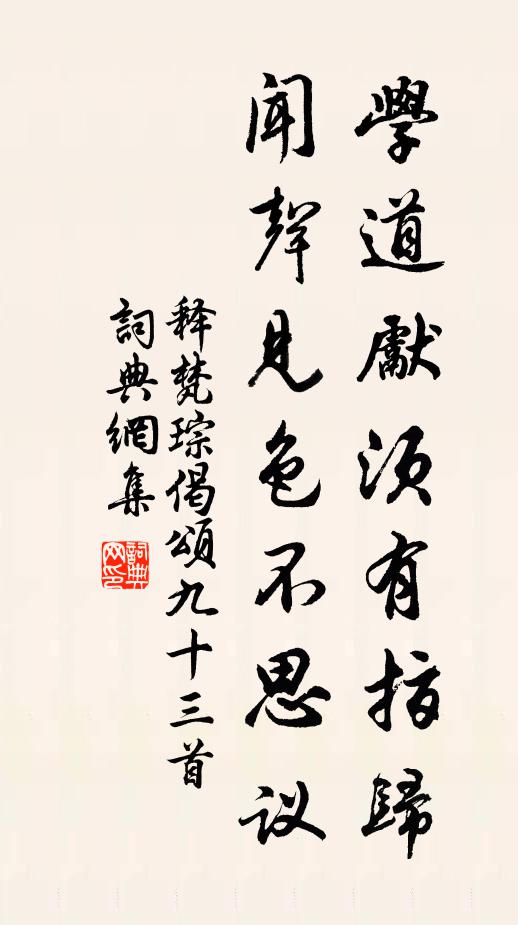 學道獻须有指歸
聞聲見色不思议
释梵琮偈頌九十三首
詞典網集
詞典
网印